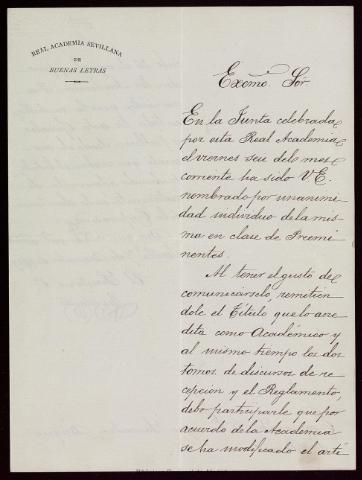 REAL ACADEMIA SEVILLANA
DE
BUENAS LETRAS
Excmo. Sor.
En la Junta celebrada
por esta Real Academia
el viernes seis del mes
corriente ha sido V.E.
nombrado por unanimi
dad individuo de la mis
ma en clase de Preemi
nentes.
Al tener el gusto de
comunicárselo, remitien
dole el Título que lo acre
dita como Académico y
al mismo tiempo los dos
tomos de discursos de re
cepcion y el Reglamento,
debo participarle que por
acuerdo de la Academia
se ha modificado el artí